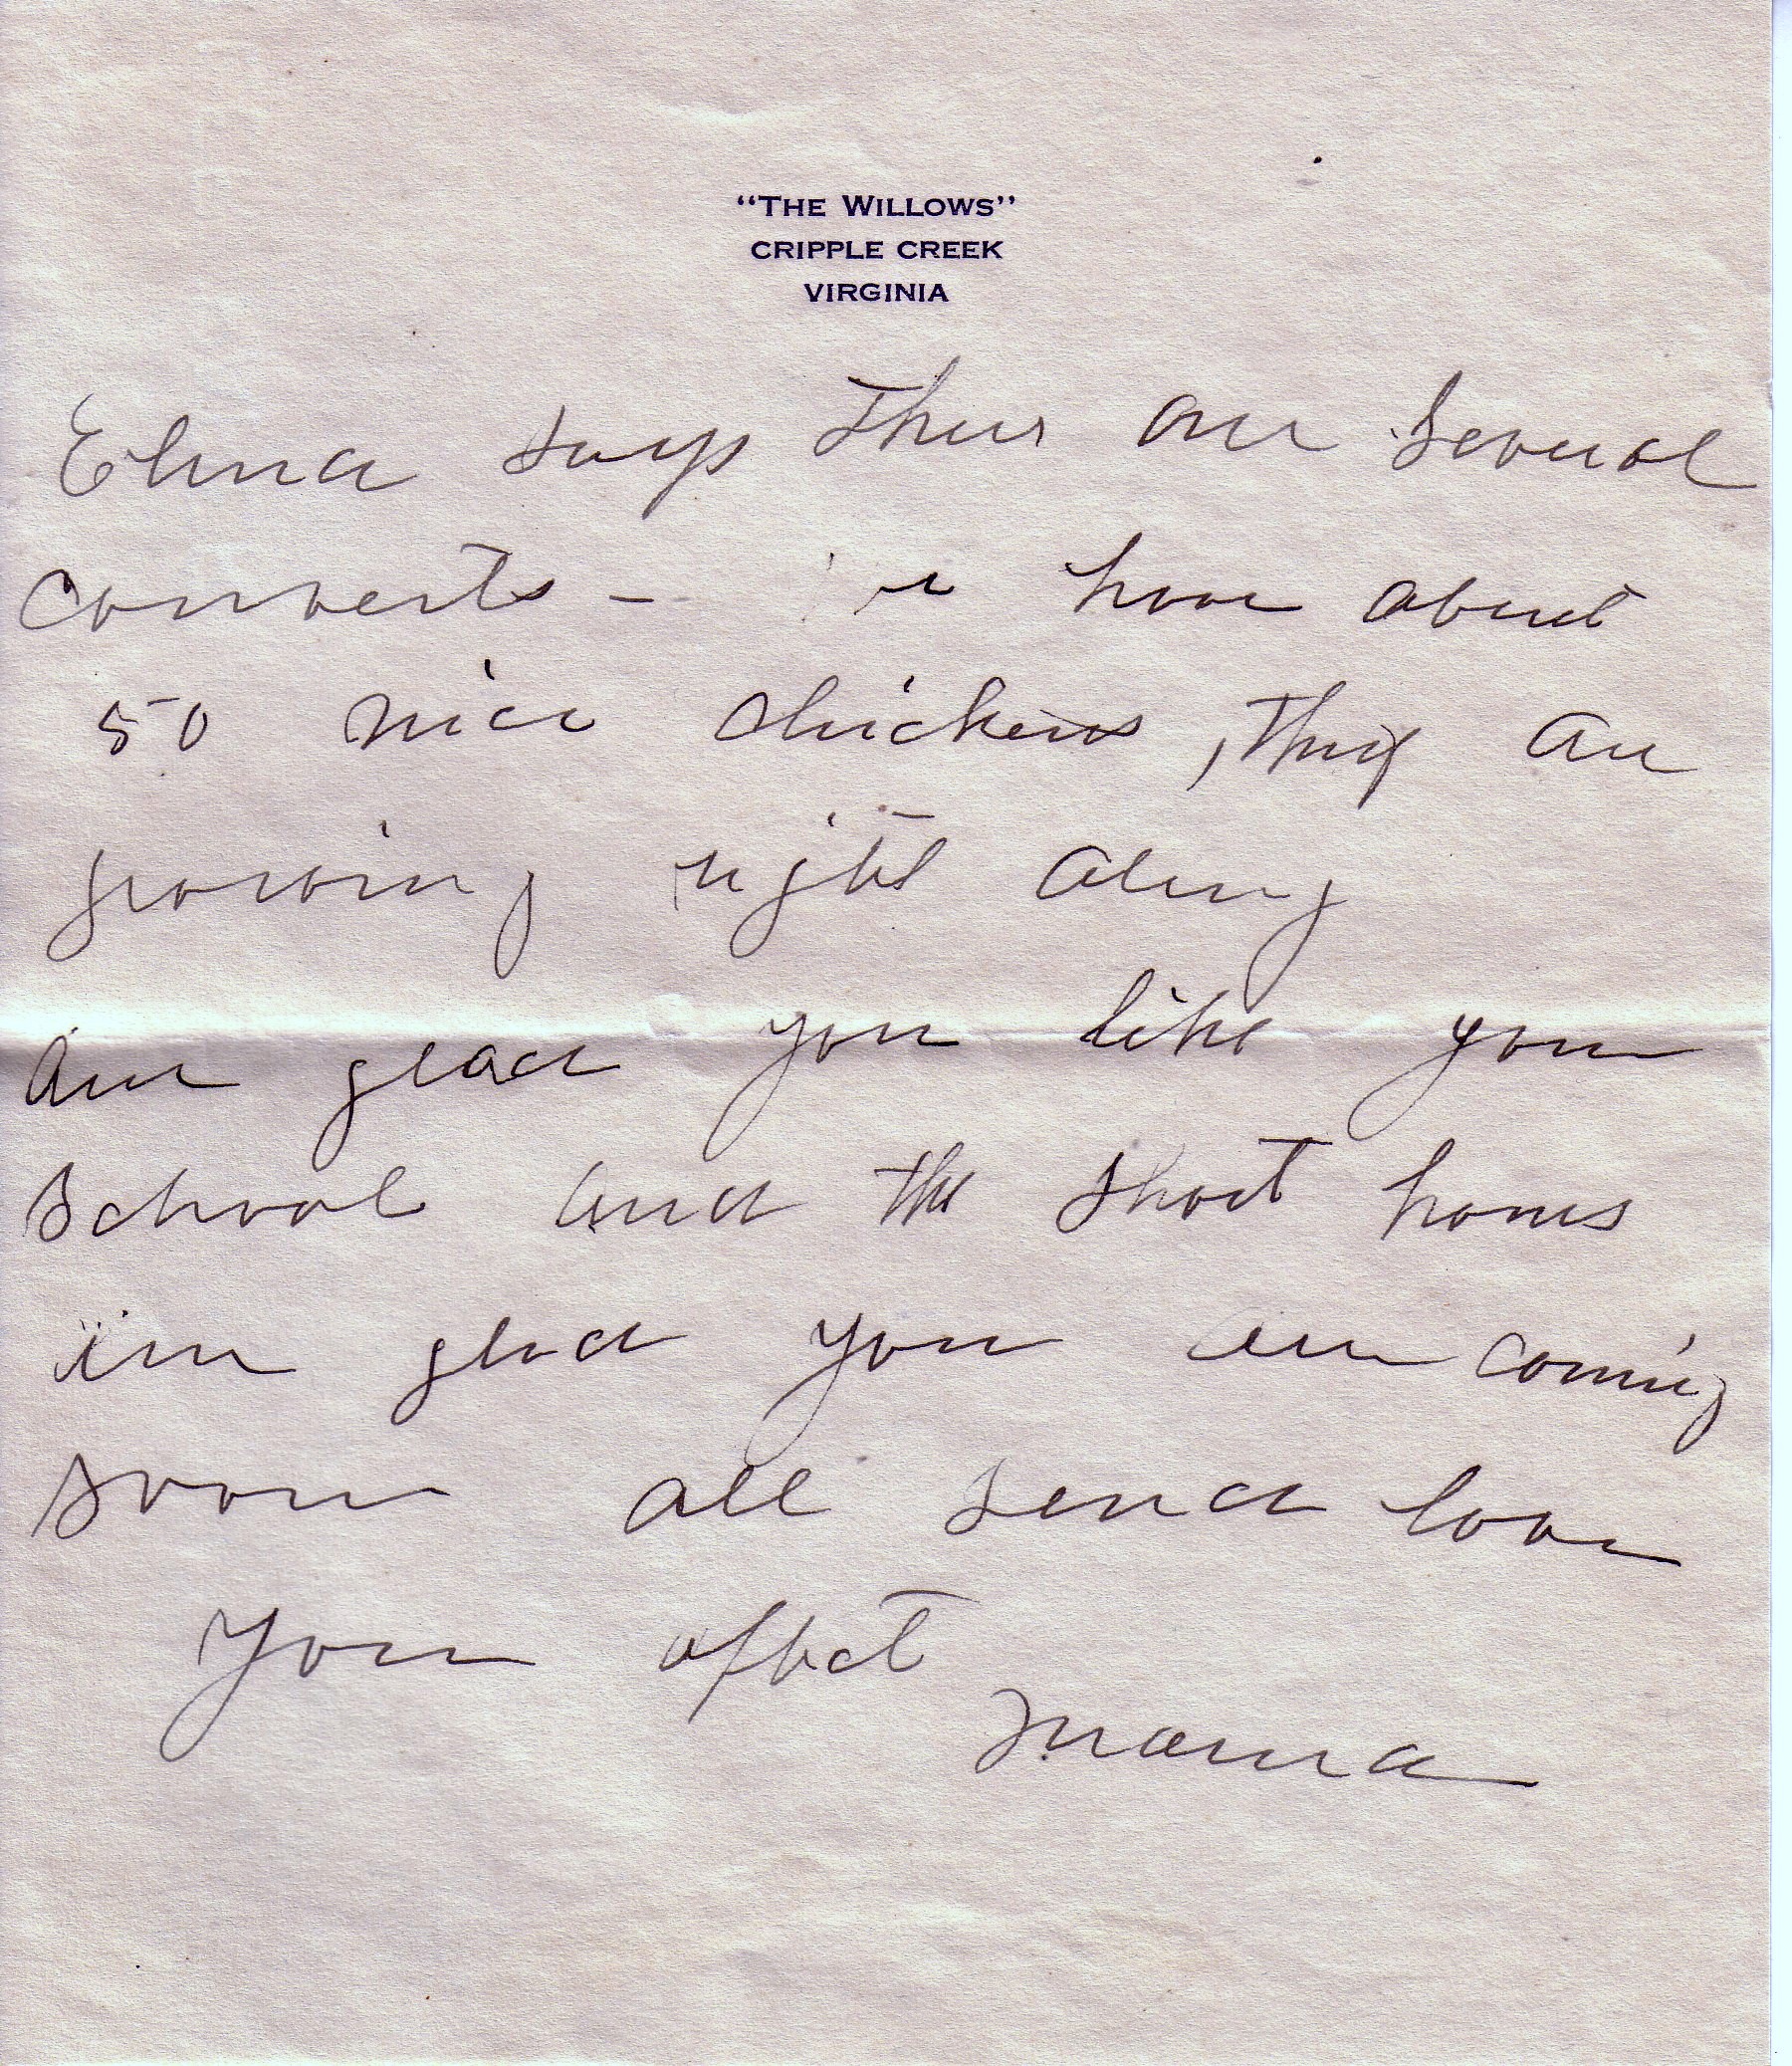 "THE WILLOWS"
CRIPPLE CREEK
VIRGINIA
says there are several
converts – have about
50 nice chickens, they are
growing right along
am glad you like your
school and the short hours
im glad you are coming
soon all send love
Your affect
Mama